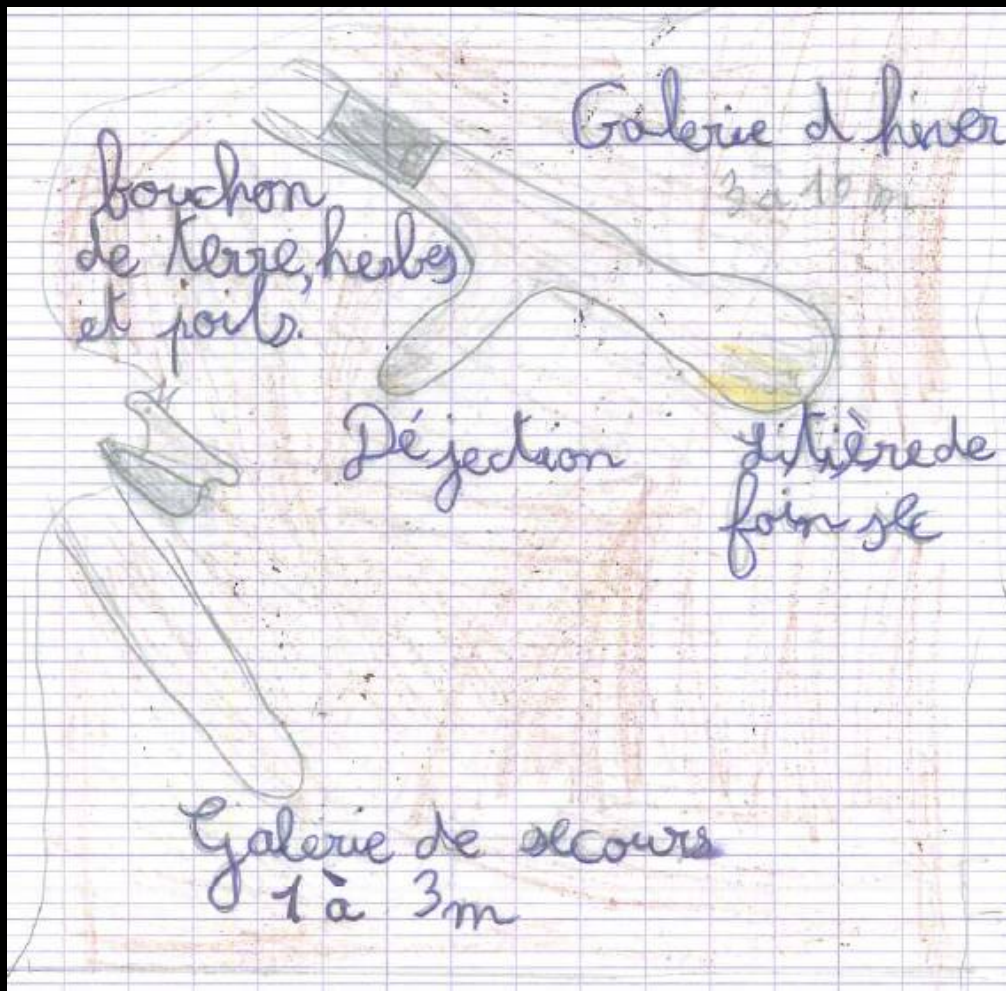 Galerie d hiver
3 a 10 m
bouchon
de terre, herbes
et poils.
Déjection
Litière de
foin sec
Galerie de secours
1 à 3m